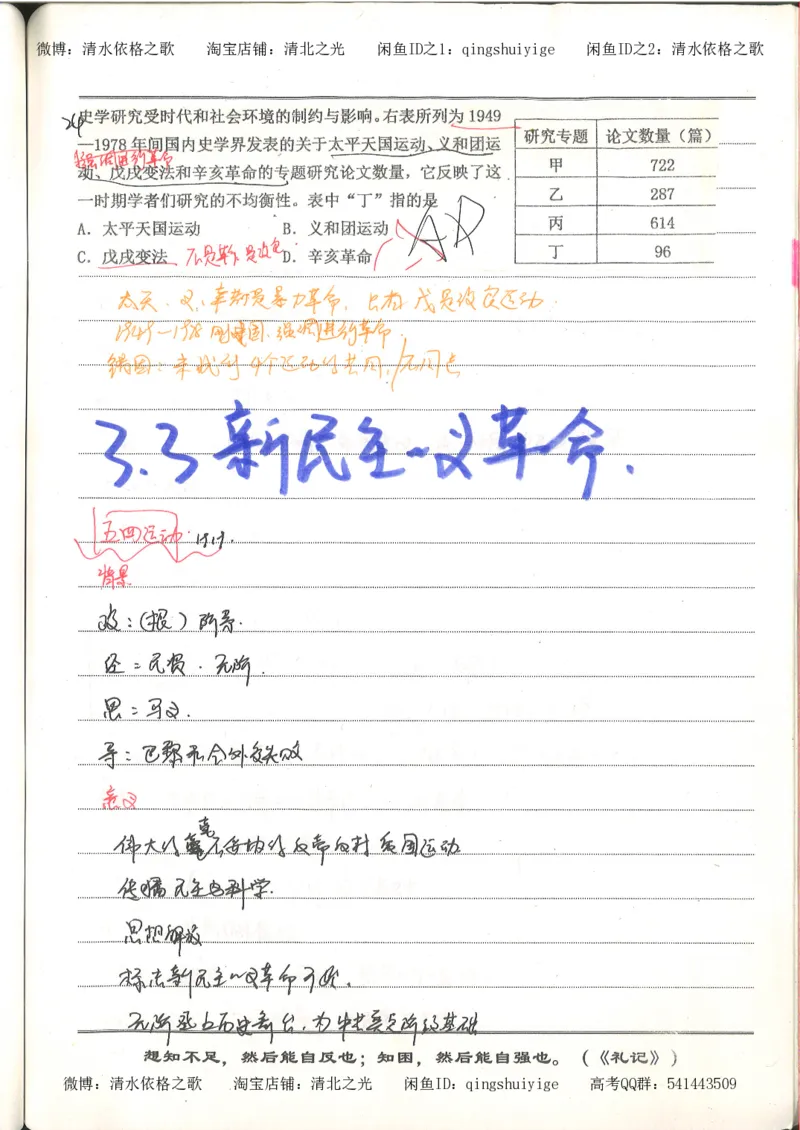 微博：清水依格之歌 淘宝店铺：清北之光 闲鱼ID之1：qingshuiyige 闲鱼ID之2：清水依格之歌
24 史学研究受时代和社会环境的制约与影响。右表所列为 1949
—1978 年间国内史学界发表的关于太平天国运动、义和团运
动、戊戌变法和辛亥革命的专题研究论文数量，它反映了这
一时期学者们研究的不均衡性。表中“丁”指的是
A．太平天国运动 B．义和团运动
C．戊戌变法 D．辛亥革命
研究专题 论文数量（篇）
甲 722
乙 287
丙 614
丁 96
强调进行革命
不是革命，是改良
太天、义、辛亥是暴力革命，只有戊是改良运动
1949—1978 刚建国，强调进行革命
错因：未找到4个运动的共同/不同点
3.3 新民主义革命.
五四运动 1919.
背景
政：(根) 阶条.
经：民资．无阶．
思：马义．
导：巴黎和会外交失败
意义
伟大的彻底不妥协的反帝反封爱国运动
传播民主与科学.
思想解放
标志新民主义革命开始．
无阶登上历史舞台．为中共奠定阶级基础
想知不足，然后能自反也；知困，然后能自强也。（《礼记》）
微博：清水依格之歌 淘宝店铺：清北之光 闲鱼ID：qingshuiyige 高考QQ群：541443509